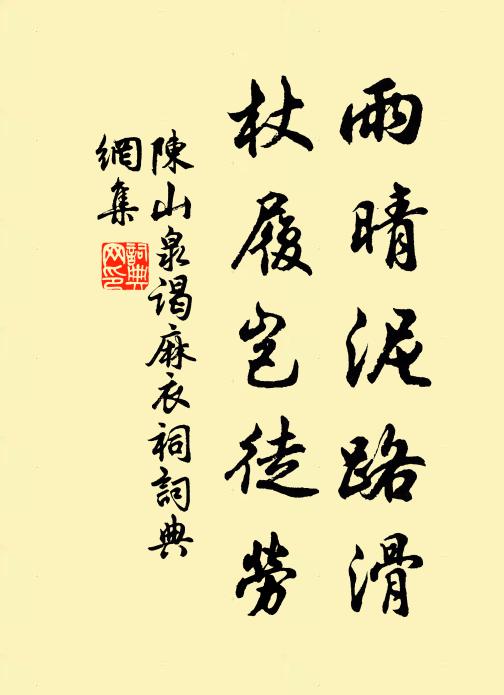 雨晴泥路滑
杖履豈徒勞
陳山泉謁麻衣祠詞典
網集
詞典
网印